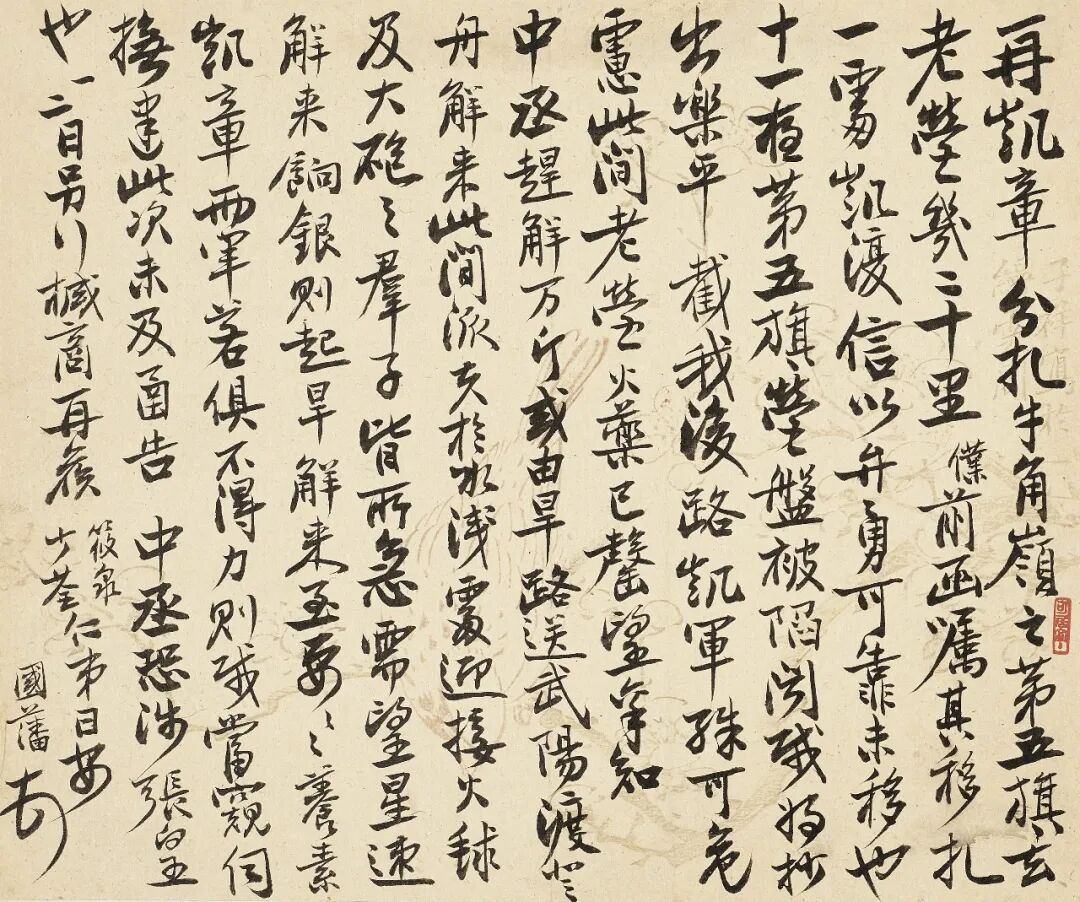 再凱章分扎牛角嶺之第五旗去
老營幾二十里僕前函囑其移扎
一處凱復信以弁勇可靠未移也
十一夜第五旗營盤被陷閔賊將抄
出樂平截我後路凱軍殊可危
慮此間老營火藥已罄望拿知
中丞趕解万斤或由旱路送武陽渡登
舟解来此間派夫於水淺處迎接火球
及大砲之羣子皆所急需望星速
解来餉銀則起旱解来至要〻〻養素
凱章兩軍若俱不得力則賊當窺伺
撫建此次未及函告中丞恐涉張皇
也一二日另行椷商再候筱泉少荃仁弟日安
國藩頓